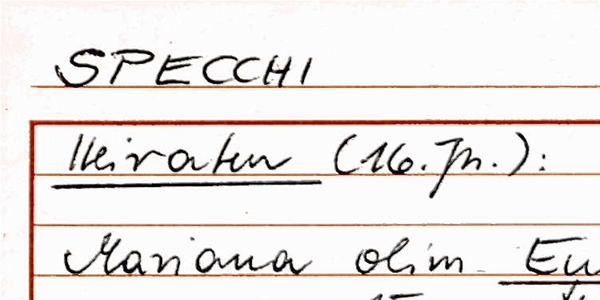 SPECCHI
Heiraten (16. Jh.):
Mariana olim Eu
15